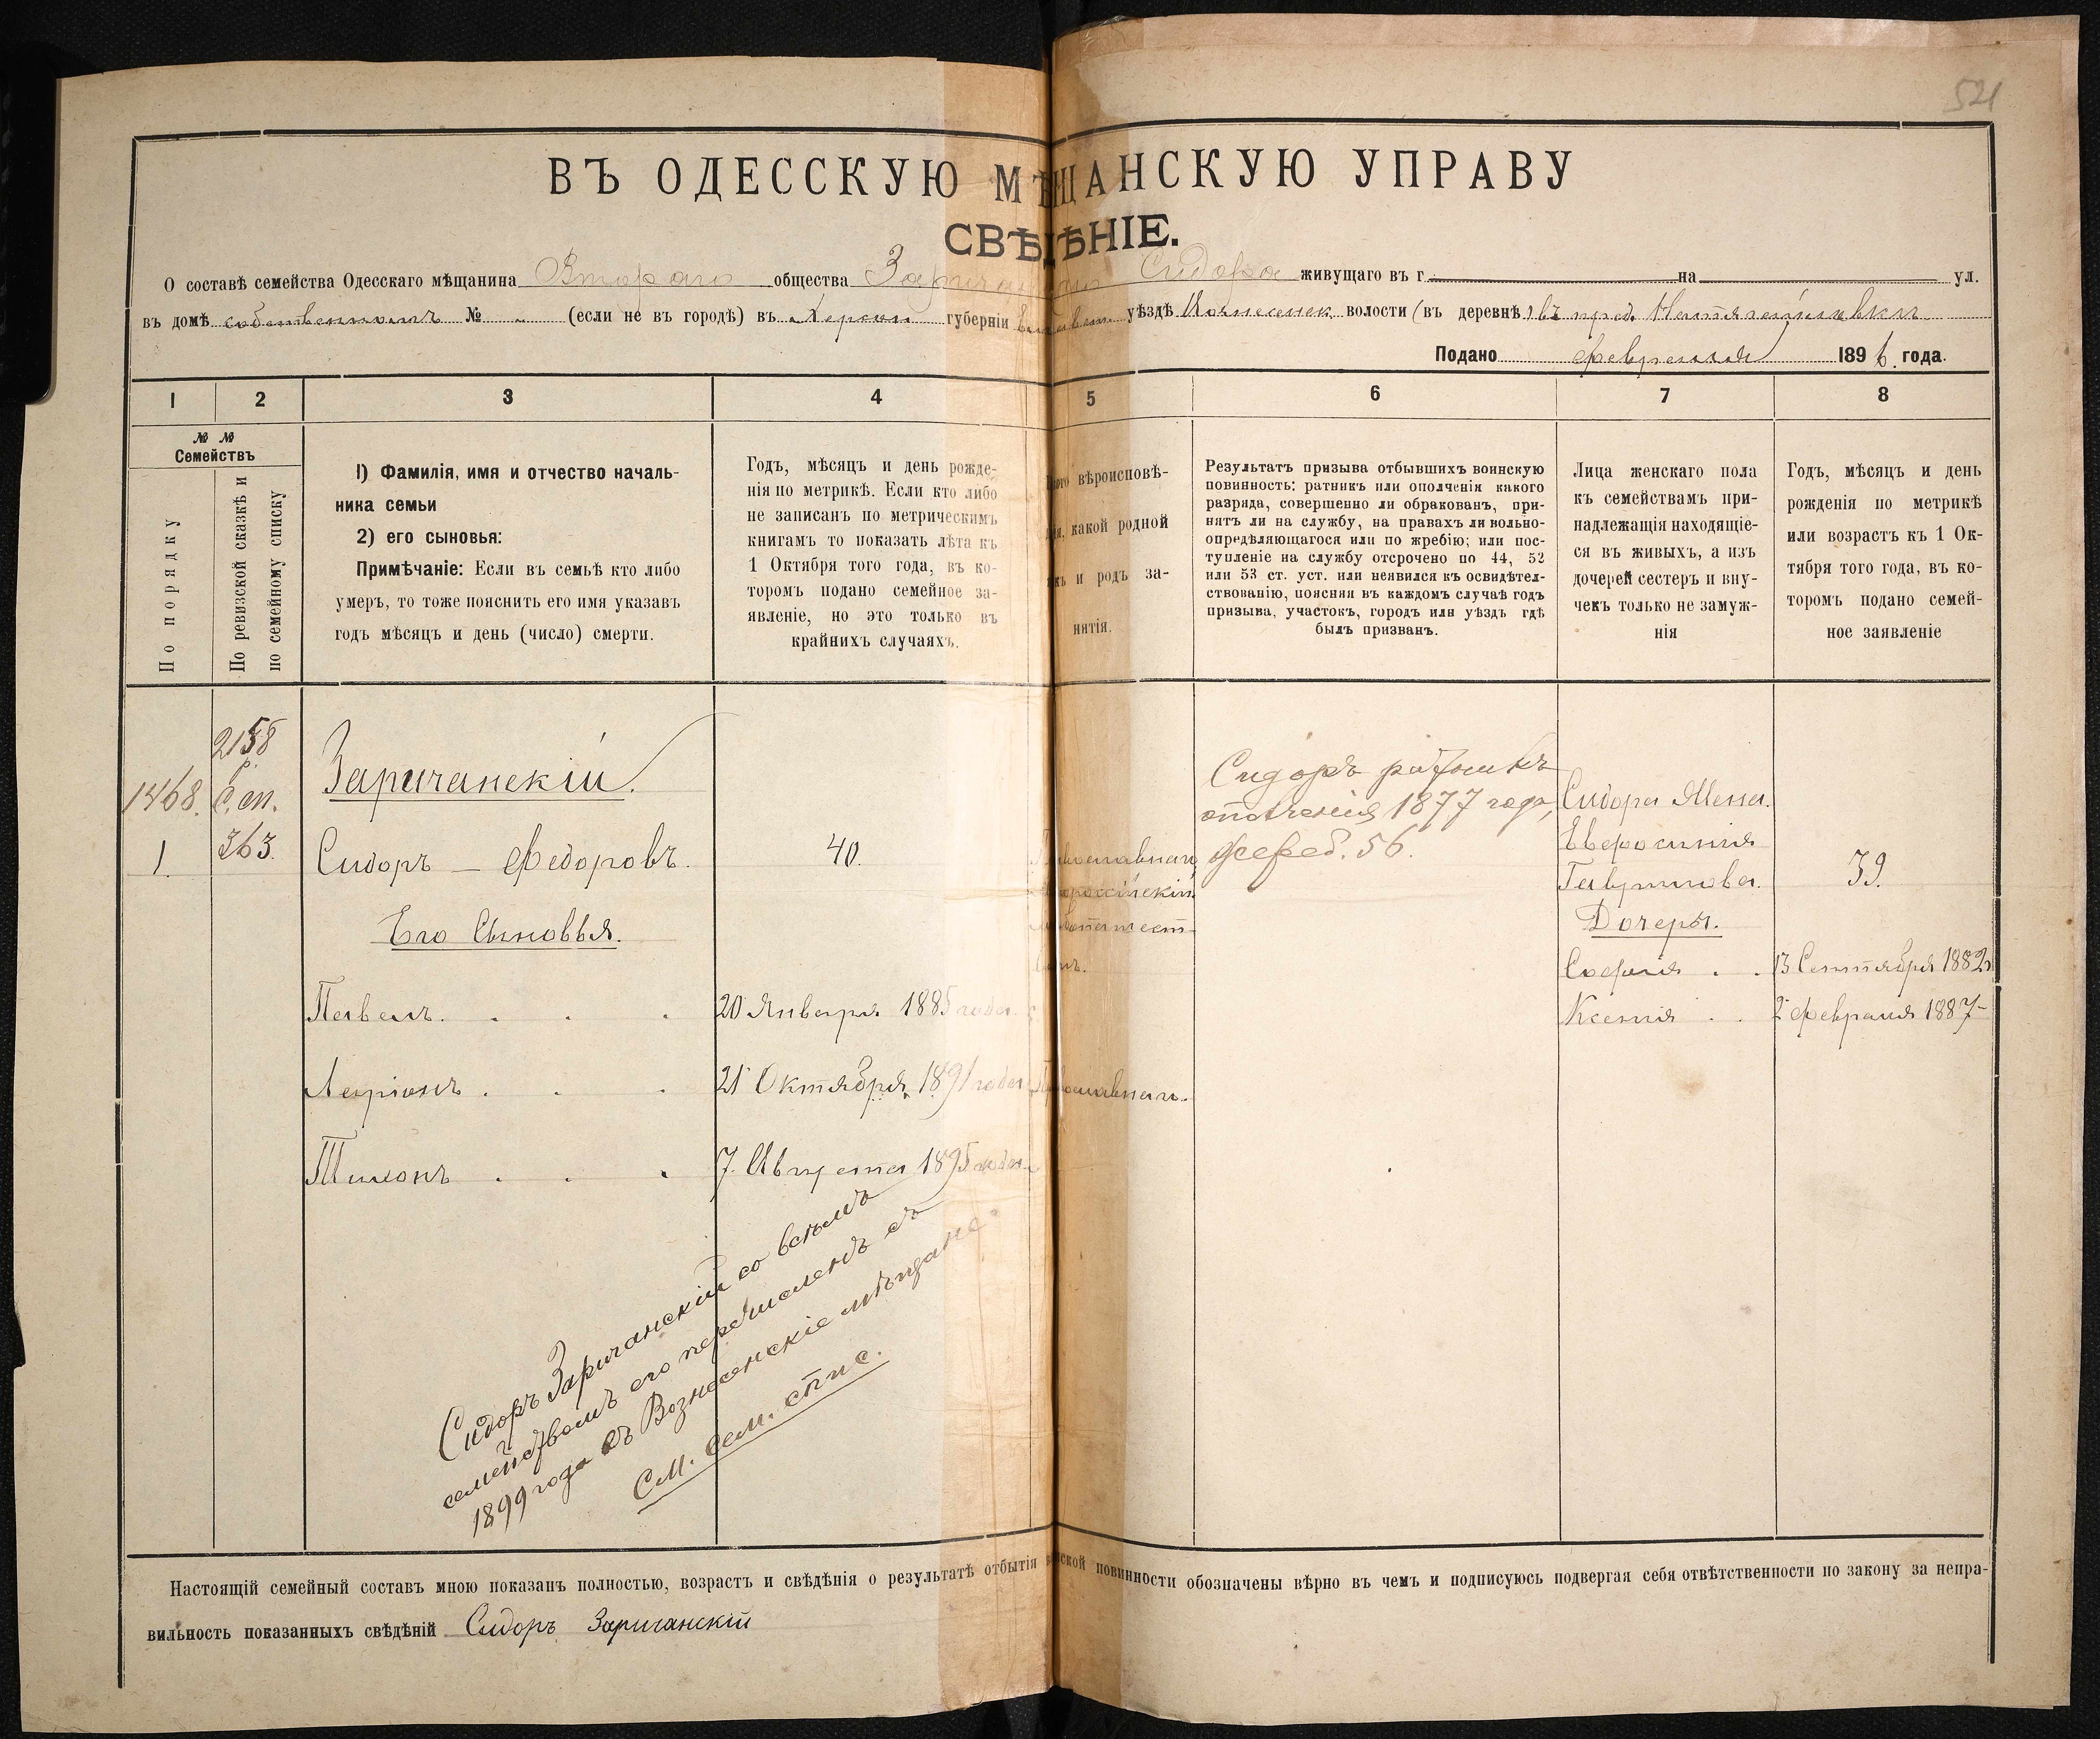 521
ВЪ ОДЕССКУЮ МѢЩАНСКУЮ УПРАВУ
СВѢДѢНІЕ.
О составѣ семейства Одесскаго мѣщанина Втораго общества Сидора живущаго въ г. на ул.
въ домѣ собственномъ № - (если не въ городѣ) въ Херсон губерніи уѣздѣ Вознесенск волости (въ деревнѣ) въ пред. Натягайловкѣ
Подано февраля 1896 года.
1 2 3 4 5 6 7 8
№ №
Семействъ
По порядку
По ревизской сказкѣ и
по семейному списку
1) Фамилія, имя и отчество началь-
ника семьи
2) его сыновья:
Примѣчаніе: Если въ семьѣ кто либо
умеръ, то тоже пояснить его имя указавъ
годъ мѣсяцъ и день (число) смерти.
Годъ, мѣсяцъ и день рожде-
нія по метрикѣ. Если кто либо
не записанъ по метрическимъ
книгамъ то показать лѣта къ
1 Октября того года, въ ко-
торомъ подано семейное за-
явленіе, но это только въ
крайнихъ случаяхъ.
вѣроисповѣ-
какой родной
и родъ за-
нятія.
Результатъ призыва отбывшихъ воинскую
повинность: ратникъ или ополченія какого
разряда, совершенно ли обракованъ, при-
нятъ ли на службу, на правахъ ли вольно-
опредѣляющагося или по жребію; или пос-
тупленіе на службу отсрочено по 44, 52
или 53 ст. уст. или неявился къ освидѣтел-
ствованію, поясняя въ каждомъ случаѣ годъ
призыва, участокъ, городъ или уѣздъ гдѣ
былъ призванъ.
Лица женскаго пола
къ семействамъ при-
надлежащія находящіе-
ся въ живыхъ, а изъ
дочерей сестеръ и вну-
чекъ только не замуж-
нія
Годъ, мѣсяцъ и день
рожденія по метрикѣ
или возрастъ къ 1 Ок-
тября того года, въ ко-
торомъ подано семей-
ное заявленіе
2158
1468. С. сп. Заричанскій.
1. 363. Сидоръ — Федоровъ. 40.
Его Сыновья.
Павелъ. . . . 20 Января 1885 года
Ларіонъ . . . 21 Октября 1891 года
Тихонъ . . . 7 Августа 1895 года
Православнаго
Сидоръ ратникъ
ополченія 1877 года,
жереб. 56.
Сидора Жена.
Ефросинія
Гаврилова. 39.
Дочеры.
Софія . . 13 Сентября 1882
Ксенія . . 2 февраля 1887
Сидоръ Заричанскій со всѣмъ
семействомъ его перечисленъ съ
1899 года въ Вознесенскіе мѣщане
См. сем. спис.
Настоящій семейный составъ мною показанъ полностью, возрастъ и свѣдѣнія о результатѣ отбытія воинской повинности обозначены вѣрно въ чемъ и подписуюсь подвергая себя отвѣтственности по закону за непра-
вильность показанныхъ свѣдѣній Сидоръ Заричанскій